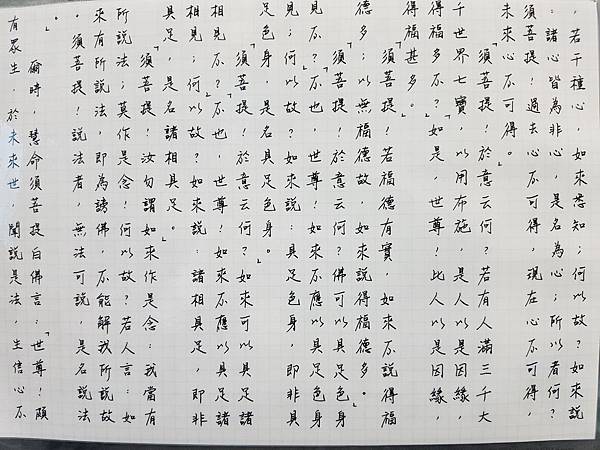 ，若干種心，如來悉知；何以故？如來說
：諸心皆為非心，是名為心；所以者何？
須菩提！過去心不可得，現在心不可得，
未來心不可得。
「須菩提！於意云何？若有人滿三千大
千世界七寶，以用布施，是人以是因緣，
得福多不？」「如是，世尊！此人以是因緣，
得福甚多。」
「須菩提！若福德有實，如來不說得福
德多；以無福德故，如來說得福德多。
「須菩提！於意云何？佛可以具足色身
見不？」「不也，世尊！如來不應以具足色身
見；何以故？如來說：具足色身，即非具
足色身，是名具足色身。」
「須菩提！於意云何？如來可以具足諸
相見不？」「不也，世尊！如來不應以具足諸
相見；何以故？如來說：諸相具足，即非
具足，是名諸相具足。」
「須菩提！汝勿謂如來作是念：我當有
所說法；莫作是念！何以故？若人言：如
來有所說法，即為謗佛，不能解我所說故
。須菩提！說法者，無法可說，是名說法
。」
爾時，慧命須菩提白佛言：「世尊！頗
有眾生，於未來世，聞說是法，生信心不